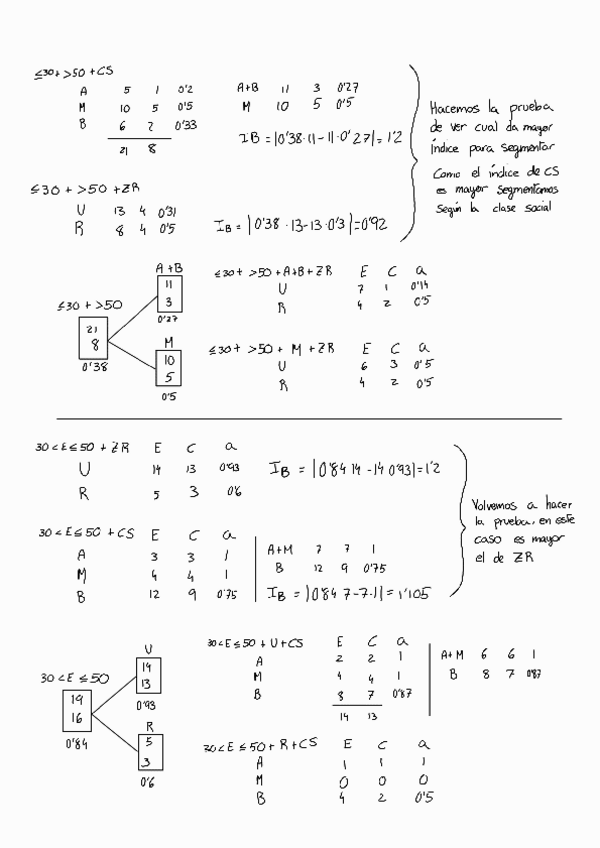 ≤30+ >50 + CS
A 5 1 0'2
M 10 5 0'5
B 6 2 0'33
21 8
A+B 11 3 0'27
M 10 5 0'5
IB = |0'38·11 - 11·0'27| = 1'2
≤30 + >50 + ZR
U 13 4 0'31
R 8 4 0'5
IB = |0'38·13-13·0'3| = 0'92
Hacemos la prueba
de ver cual da mayor
índice para segmentar
Como el índice de CS
es mayor segmentamos
según la clase social
≤30 + >50
21
8
0'38
A+B
11
3
0'27
M
10
5
0'5
≤30+ >50 + A+B + ZR E C a
U 7 1 0'14
R 4 2 0'5
≤30+ >50 + M + ZR E C a
U 6 3 0'5
R 4 2 0'5
30<E≤50 + ZR E C a
U 14 13 0'93
R 5 3 0'6
IB = |0'84 14 - 14 0'93| = 1'2
30<E≤50 + CS E C a
A 3 3 1
M 4 4 1
B 12 9 0'75
A+M 7 7 1
B 12 9 0'75
IB = |0'84 7-7·1| = 1'105
Volvemos a hacer
la prueba, en este
caso es mayor
el de ZR
30<E≤50
19
16
0'84
U
14
13
0'93
R
5
3
0'6
30<E≤50 + U + CS E C a
A 2 2 1
M 4 4 1
B 8 7 0'87
14 13
A+M 6 6 1
B 8 7 0'87
30<E≤50 + R + CS E C a
A 1 1 1
M 0 0 0
B 4 2 0'5